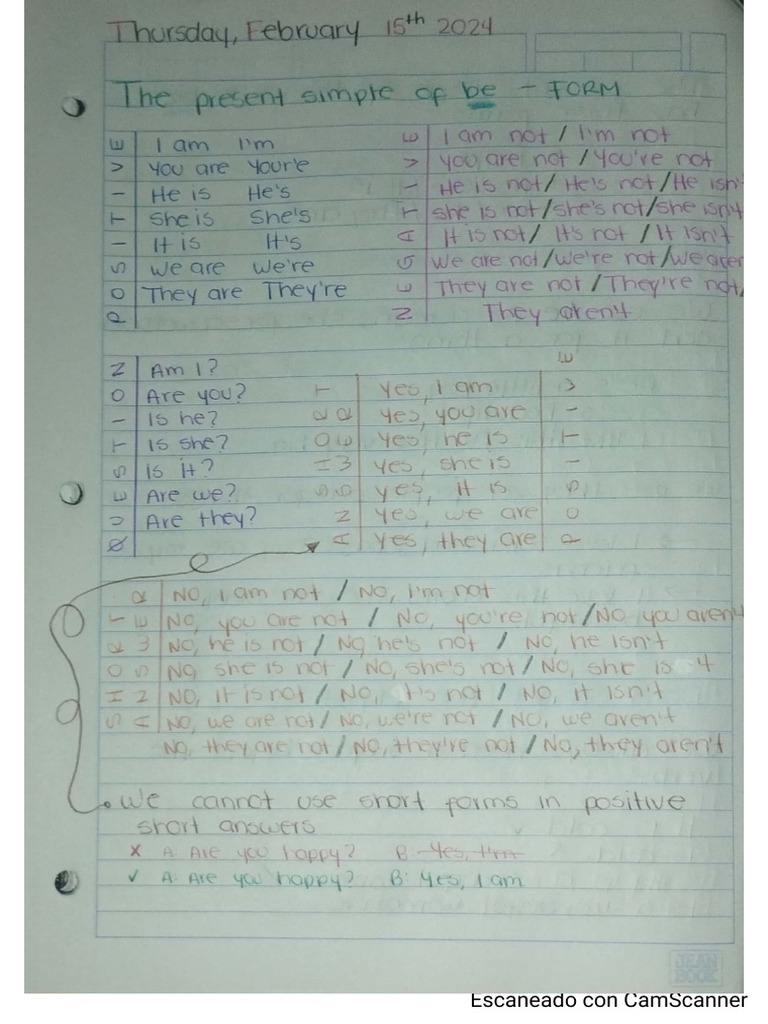 Thursday, February 15th 2024
The present simple of be - FORM
POSITIVE
I am I'm
You are Your'e
He is He's
She is She's
It is It's
We are We're
They are They're
NEGATIVE
I am not / I'm not
You are not / You're not
He is not / He's not / He isn'
She is not / she's not / she isn't
It is not / It's not / It isn't
We are not / we're not / we aren
They are not / They're not,
They aren't
QUESTION
Am I?
Are you?
Is he?
Is she?
Is it?
Are we?
Are they?
SHORT ANSWER
Yes, I am
yes, you are
Yes, he is
Yes, she is
yes, it is
Yes, we are
Yes, they are
POSITIVE
SHORT ANSWER
NO, I am not / No, I'm not
No, you are not / No, you're not / No you aren't
No, he is not / No, he's not / No, he isn't
No, she is not / No, she's not / No, she is t
NO, it is not / NO, it's not / NO, it isn't
No, we are not / No, we're not / No, we aren't
No, they are not / No, they're not / No, they aren't
We cannot use short forms in positive
short answers
x A: Are you happy? B: Yes, I'm
✓ A: Are you happy? B: Yes, I am
JEAN BOOK
Escaneado con CamScanner